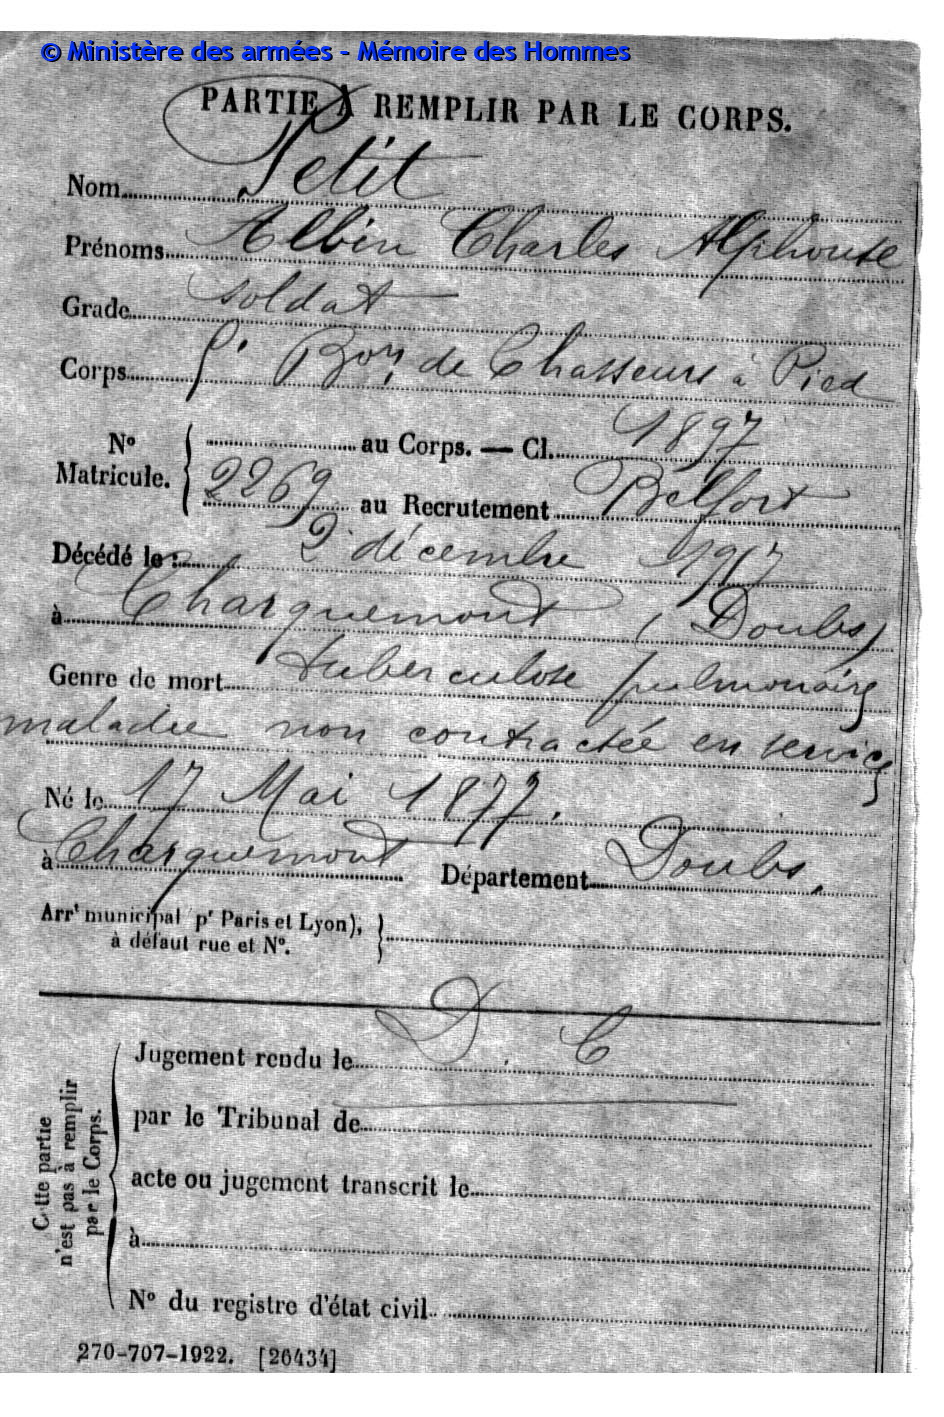 © Ministère des armées - Mémoire des Hommes
PARTIE À REMPLIR PAR LE CORPS.
Nom Petit
Prénoms Albin Charles Alphonse
Grade Soldat
Corps Bon de Chasseurs à Pied
No Matricule. { au Corps. — Cl. 1897
2269 au Recrutement Belfort
Décédé le : 2 décembre 1917
à Charquemont (Doubs)
Genre de mort tuberculose pulmonaire
maladie non contractée en service
Né le 17 Mai 1877.
à Charquemont Département Doubs.
Arrt municipal pr Paris et Lyon),
à défaut rue et No. }
D. C
Jugement rendu le
par le Tribunal de
acte ou jugement transcrit le
à
No du registre d'état civil
Cette partie
n'est pas à remplir
par le Corps.
270-707-1922. [26434]